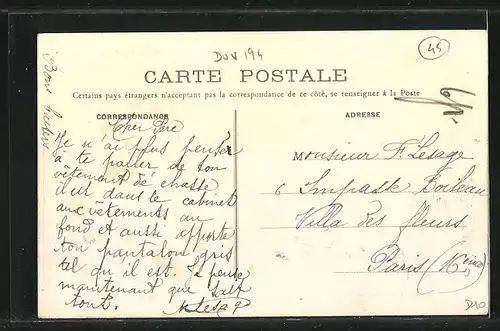 DUV 194
45
CARTE POSTALE
Certains pays étrangers n'acceptant pas la correspondance de ce côté, se renseigner à la Poste
CORRESPONDANCE
ADRESSE
Bons baisers
Cher Père
Je n'ai plus penser
a te parler de ton
vêtement de chasse
il est dans le cabinet
aux vêtements au
fond et aussi apporte
ton pantalon gris
tel qu'il est. Je pense
maintenant que c'est
tout. Lesage
Monsieur F. Lesage
6 Impasse Boileau
Villa des fleurs
Paris